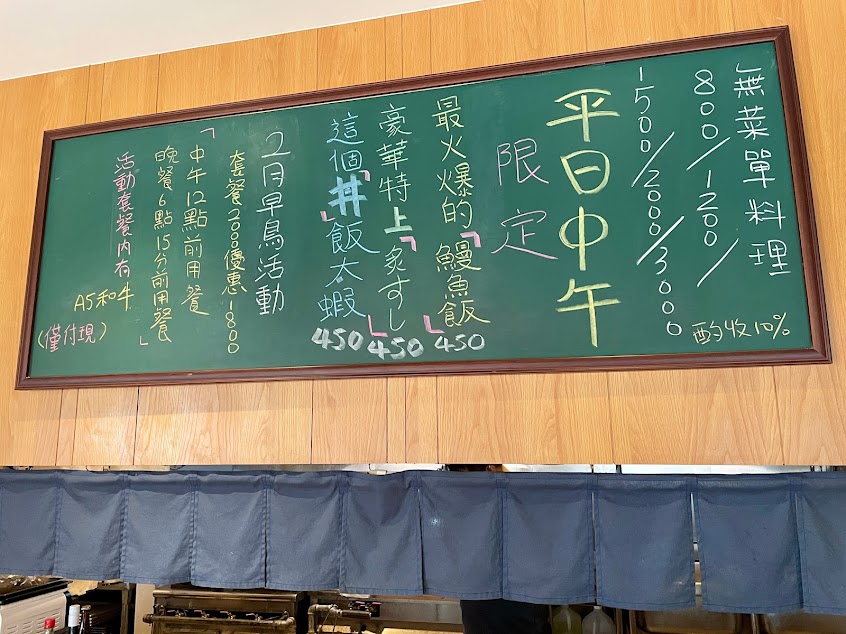 無菜單料理
800/1200/
1500/2000/3000
酌收10%
平日中午
限定
最火爆的「鰻魚飯」450
豪華特上「炙すし」450
這個「丼」飯太蝦450
2月早鳥活動
套餐2000優惠1800
「中午12點前用餐
晚餐6點15分前用餐」
活動套餐內有
A5和牛
(僅付現)